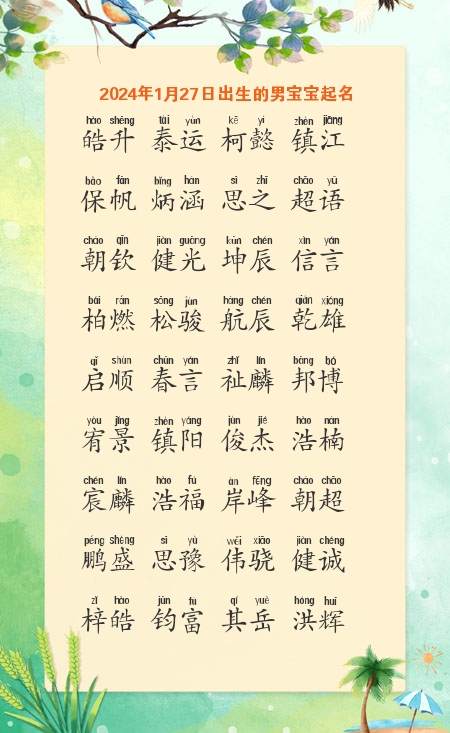 2024年1月27日出生的男宝宝起名
hào shēng tài yùn kē yì zhèn jiāng
皓升 泰运 柯懿 镇江
bǎo fān bǐng hán sī zhī chāo yǔ
保帆 炳涵 思之 超语
cháo qīn jiàn guāng kūn chén xìn yán
朝钦 健光 坤辰 信言
bǎi rán sōng jùn háng chén qián xióng
柏燃 松骏 航辰 乾雄
qǐ shùn chūn yán zhǐ lín bāng bó
启顺 春言 祉麟 邦博
yòu jǐng zhèn yáng jùn jié hào nán
宥景 镇阳 俊杰 浩楠
chén lín hào fú àn fēng cháo chāo
宸麟 浩福 岸峰 朝超
péng shèng sī yù wěi xiāo jiàn chéng
鹏盛 思豫 伟骁 健诚
zǐ hào jūn fù qí yuè hóng huī
梓皓 钧富 其岳 洪辉